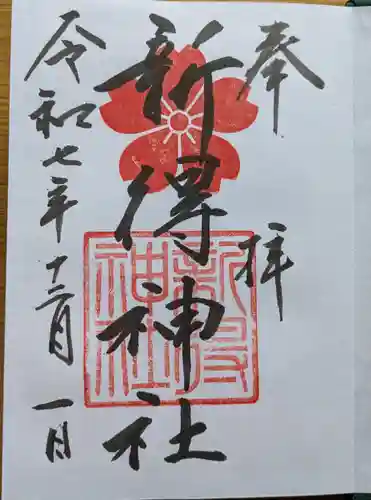 奉拝
新得神社
新得
神社
令和七年十二月一日